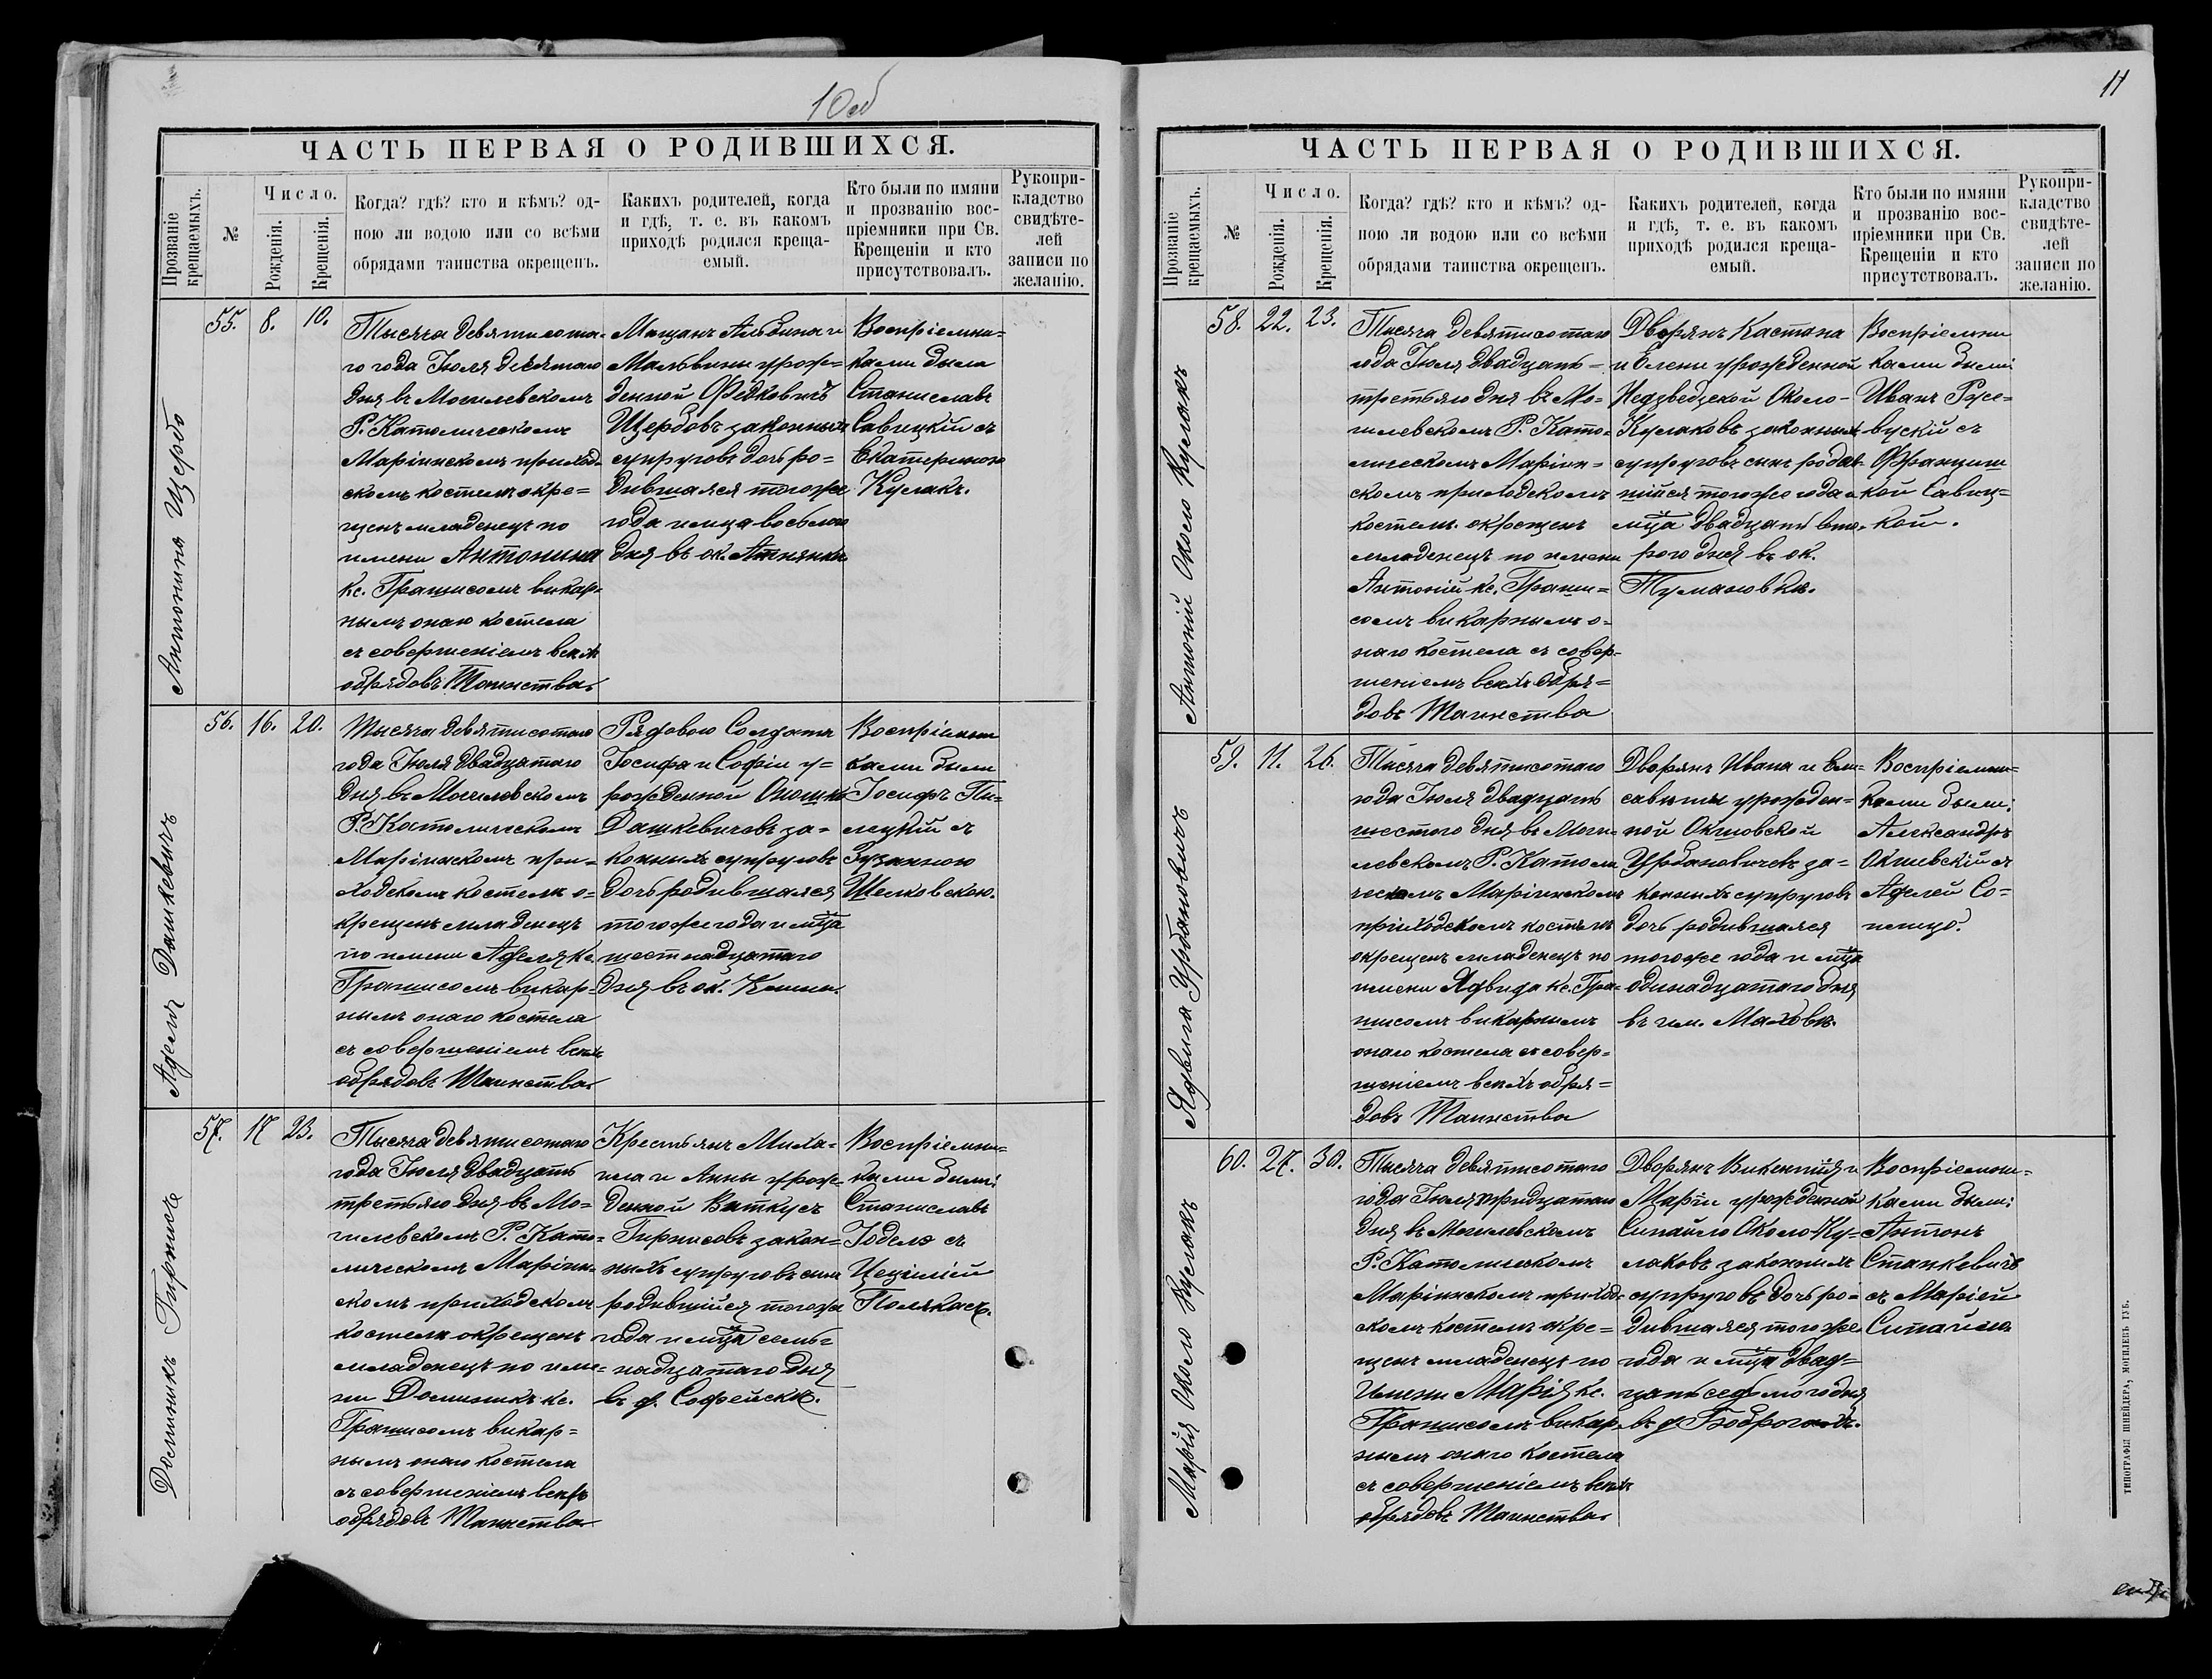 10 об
ЧАСТЬ ПЕРВАЯ О РОДИВШИХСЯ.
Прозваніе крещаемыхъ.
№
Число.
Рожденія.
Крещенія.
Когда? гдѣ? кто и кѣмъ? од-
ною ли водою или со всѣми
обрядами таинства окрещенъ.
Какихъ родителей, когда
и гдѣ, т. е. въ какомъ
приходѣ родился креща-
емый.
Кто были по имяни
и прозванію вос-
пріемники при Св.
Крещеніи и кто
присутствовалъ.
Рукопри-
кладство
свидѣте-
лей
записи по
желанію.
Антонина Щербо
55.
8.
10.
Тысяча девятисота-
го года Іюля девятаго
дня въ Могилевскомъ
Р. Католическомъ
Маріинскомъ приход-
скомъ костелѣ окре=
щенъ младенецъ по
имени Антонина
кс. Гранисомъ викар-
нымъ онаго костела
съ совершеніемъ всѣхъ
обрядовъ Таинства.
Мѣщанъ Альбина и
Мальвины урож=
денной Федковичъ
Щербовъ законныхъ
супруговъ дочь ро=
дившаяся тогоже
года и мца восьмого
дня въ ок.
Воспріемни=
ками были
Станиславъ
Савицкій съ
Екатериною
Кулакъ.
Аделя Дашкевичъ
56.
16.
20.
Тысяча девятисотаго
года Іюля двадцатаго
дня въ Могилевскомъ
Р. Католическомъ
Маріинскомъ при=
ходскомъ костелѣ о=
крещенъ младенецъ
по имени Аделя кс.
Гранисомъ викар=
нымъ онаго костела
съ совершеніемъ всѣхъ
обрядовъ Таинства.
Рядового Солдата
Іосифа и Софіи у=
рожденной
Дашкевичовъ за=
конныхъ супруговъ
дочь родившаяся
тогоже года и мца
шестнадцатаго
дня въ ок.
Воспріемни
ками были
Іосифъ Пи-
лецкій съ
Зузанною
Щелковскою.
Доминикъ Гирнисъ
57.
17
23.
Тысяча девятисотаго
года Іюля двадцать
третьяго дня въ Мо=
гилевскомъ Р. Като=
лическомъ Маріин-
скомъ приходскомъ
костелѣ окрещенъ
младенецъ по име=
ни Доминикъ кс.
Гранисомъ викар=
нымъ онаго костела
съ совершеніемъ всѣхъ
обрядовъ Таинства
Крестьянъ Миха=
ила и Анны урож-
денной Виткусъ
Гирнисовъ закон=
ныхъ супруговъ сынъ
родившійся тогоже
года и мца семь-
надцатаго дня
въ ф. Софейскѣ.
Воспріемни=
ками были:
Станиславъ
съ
Цециліей
11
ЧАСТЬ ПЕРВАЯ О РОДИВШИХСЯ.
Прозваніе крещаемыхъ.
№
Число.
Рожденія.
Крещенія.
Когда? гдѣ? кто и кѣмъ? од-
ною ли водою или со всѣми
обрядами таинства окрещенъ.
Какихъ родителей, когда
и гдѣ, т. е. въ какомъ
приходѣ родился креща-
емый.
Кто были по имяни
и прозванію вос-
пріемники при Св.
Крещеніи и кто
присутствовалъ.
Рукопри-
кладство
свидѣте-
лей
записи по
желанію.
Антоній Около Кулакъ
58.
22.
23.
Тысяча девятисотаго
года Іюля двадцать=
третьяго дня въ Мо=
гилевскомъ Р. Като=
лическомъ Маріин=
скомъ приходскомъ
костелѣ окрещенъ
младенецъ по имени
Антоній кс. Грани=
сомъ викарнымъ о=
наго костела съ совер-
шеніемъ всѣхъ обря=
довъ Таинства
Дворянъ Кастана
и Елены урожденной
Недзведзкой Около-
Кулаковъ законныхъ
супруговъ сынъ родив-
шійся тогоже года и
мца двадцать вто-
рого дня въ ок.
Тумановкѣ.
Воспріемни
ками были
Иванъ
съ
Францишк
кой Савиц=
кой.
Ядвига Урбановичъ
59.
11.
26.
Тысяча девятисотаго
года Іюля двадцать
шестого дня въ Моги-
левскомъ Р. Католи
ческомъ Маріинскомъ
приходскомъ костелѣ
окрещенъ младенецъ по
имени Ядвига кс. Гра-
нисомъ викарнымъ
онаго костела съ совер=
шеніемъ всѣхъ обря=
довъ Таинства
Дворянъ Ивана и Ели-
саветы урожден=
ной
Урбановичевъ за=
конныхъ супруговъ
дочь родившаяся
тогоже года и мца
одинадцатаго дня
въ им. Маховѣ.
Воспріемни=
ками были:
Александръ
съ
Аделей Со=
Марія Около Кулакъ
60.
27.
30.
Тысяча девятисотаго
года Іюля тридцатаго
дня въ Могилевскомъ
Р. Католическомъ
Маріинскомъ приход=
скомъ костелѣ окре=
щенъ младенецъ по
имени Марія кс.
Гранисомъ викар-
нымъ онаго костела
съ совершеніемъ всѣхъ
обрядовъ Таинства.
Дворянъ Викентія и
Маріи урожденной
Сипайло Около-Ку=
лаковъ законныхъ
супруговъ дочь ро=
дившаяся тогоже
года и мца двад=
цать седьмого дня
въ ф
Воспріемни=
ками были:
Антонъ
Станкевичъ
съ Маріей
Сипайло.
ТИПОГРАФІЯ ШНЕЙДЕРА, МОГИЛЕВЪ ГУБ.